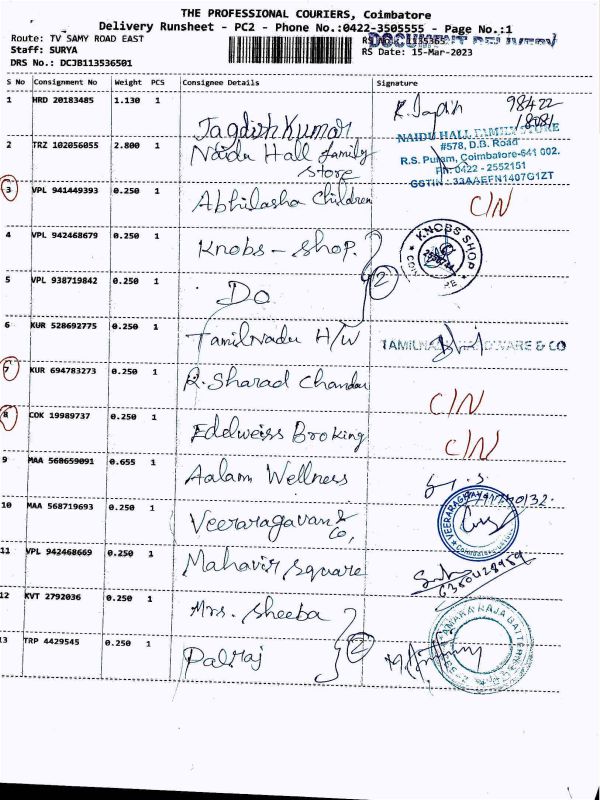 THE PROFESSIONAL COURIERS, Coimbatore
Delivery Runsheet - PC2 - Phone No.:0422-3505555 - Page No.:1
Route: TV SAMY ROAD EAST
Staff: SURYA
RS Date: 15-Mar-2023
DRS No.: DCJB113536501
S No Consignment No Weight PCS Consignee Details Signature
1 HRD 20183485 1.130 1 Jagdish Kumar 98422
2 TRZ 102056055 2.800 1 Naidu Hall family store
NAIDU HALL FAMILY STORE
#578, D.B. Road
R.S. Puram, Coimbatore-641 002.
PH: 0422 - 2552151
GSTIN : 33AAEFN1407G1ZT
3 VPL 941449393 0.250 1 Abhilasha Children C/N
4 VPL 942468679 0.250 1 Knobs - Shop. 2
KNOBS SHOP
5 VPL 938719842 0.250 1 Do
6 KUR 528692775 0.250 1 TamilNadu H/W
7 KUR 694783273 0.250 1 R. Sharad Chandar C/N
8 COK 19989737 0.250 1 Edelweiss Broking C/N
9 MAA 568659091 0.655 1 Aalam Wellness
10 MAA 568719693 0.250 1 Veeraragavan & Co,
11 VPL 942468669 0.250 1 Mahavir Square
12 KVT 2792036 0.250 1 Mrs. Sheeba 2
13 TRP 4429545 0.250 1 Palraj